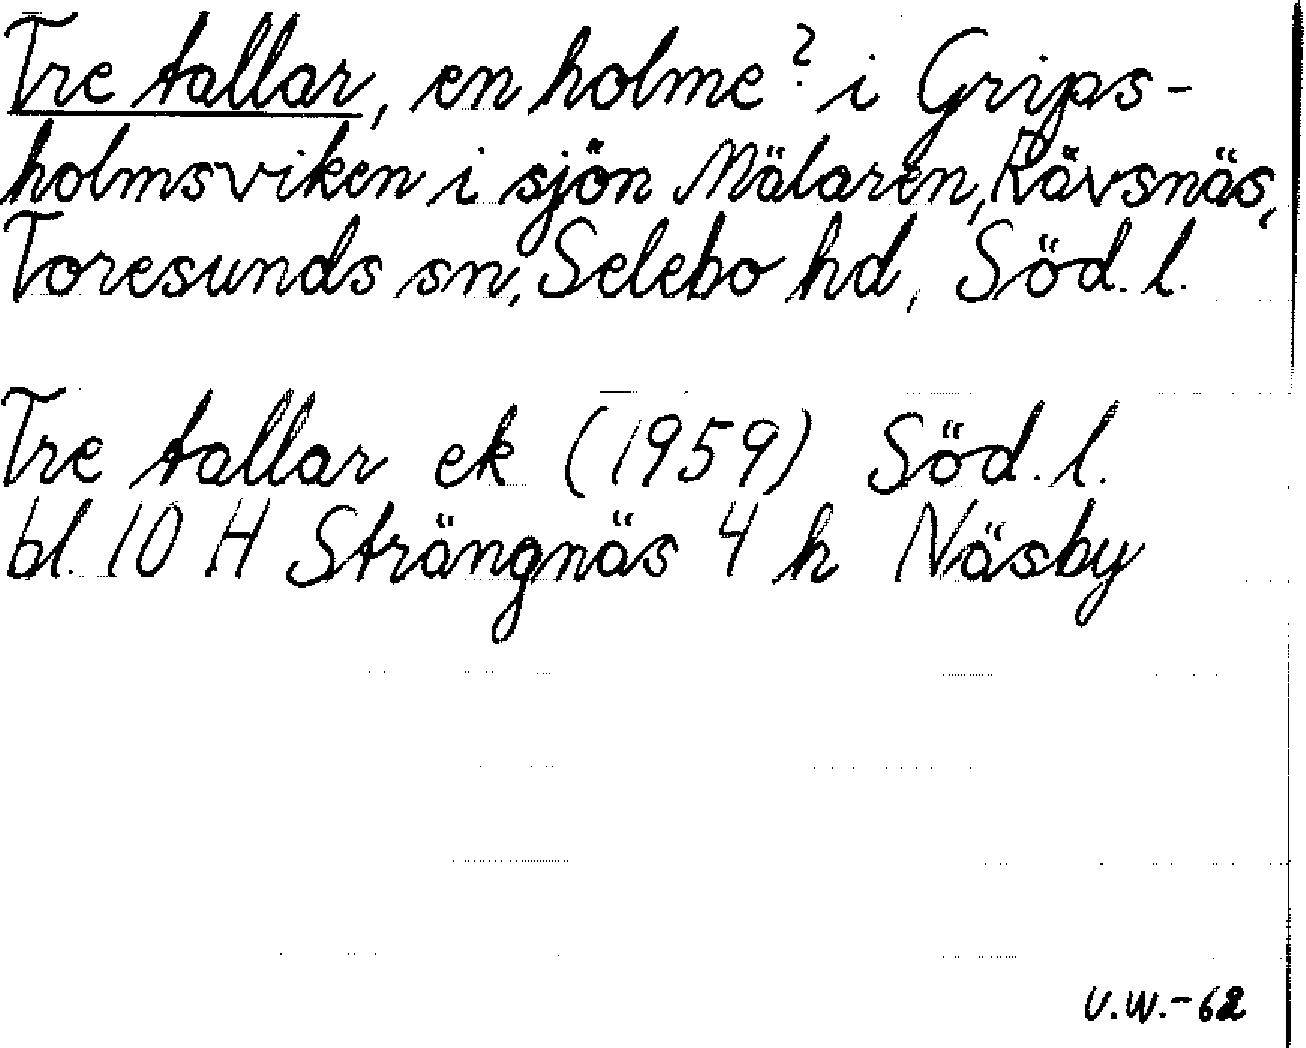 Tre tallar, en holme? i Grips-
holmsviken i sjön Mälaren, Rävsnäs,
Toresunds sn, Selebo hd, Söd. l.
Tre tallar ek (1959) Söd. l.
bl. 10 H Strängnäs 4 h Näsby
V.W.-62